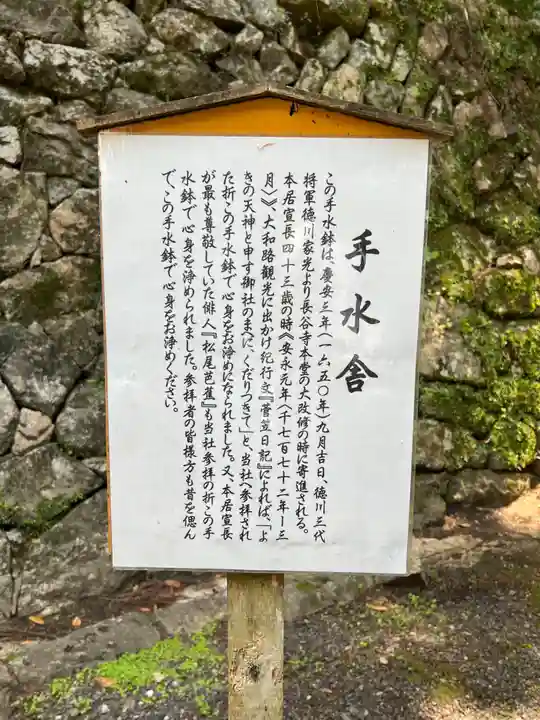 手水舎
この手水鉢は、慶安三年(一六五〇年)九月吉日、徳川三代
将軍徳川家光より長谷寺本堂の大改修の時に寄進される。
本居宣長四十三歳の時《安永元年〈千七百七十二年―三
月〉》大和路観光に出かけ紀行文『菅笠日記』によれば、「よ
きの天神と申す御社のまに、くだりつきて」と、当社へ参拝され
た折この手水鉢で心身をお浄めになられました。又、本居宣長
が最も尊敬していた俳人『松尾芭蕉』も当社参拝の折この手
水鉢で心身を浄められました。参拝者の皆様方も昔を偲ん
で、この手水鉢で心身をお浄めください。